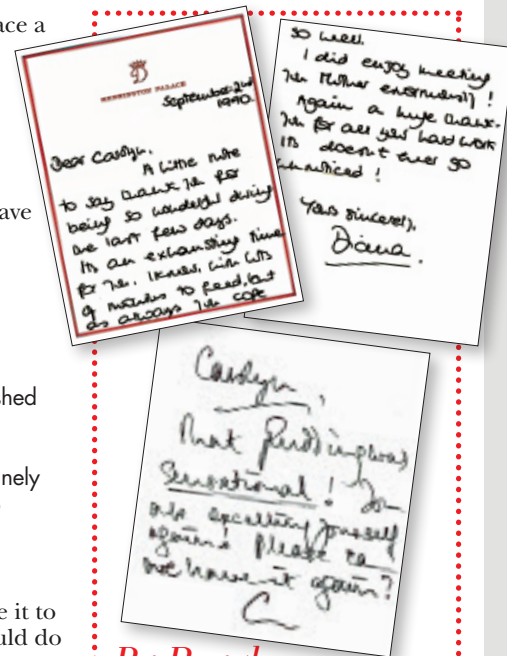 ace a
ave
shed
nely
e it to
uld do
D
KENSINGTON PALACE
September 2nd
1990.
Dear Carolyn,
A little note
to say thank you for
being so wonderful during
the last few days.
Its an exhausting time
for you, I know, with lots
of mouths to feed, but
as always you cope
so well.
I did enjoy meeting
your Mother enormously!
Again a huge thank-
you for all your hard work
its doesn't ever go
unnoticed!
Yours sincerely,
Diana.
Carolyn,
That pudding was
sensational! You
are excelling yourself
again! Please can
we have it again?
C